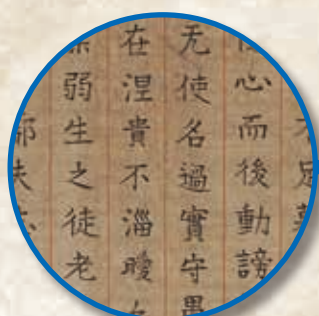 不足
心而後動謗
无使名過實守愚
在涅貴不淄曖
弱生之徒老
鄙夫